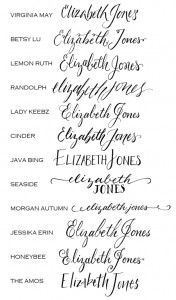 VIRGINIA MAY Elizabeth Jones
BETSY LU Elizabeth Jones
LEMON RUTH Elizabeth Jones
RANDOLPH Elizabeth Jones
LADY KEEBZ Elizabeth Jones
CINDER Elizabeth Jones
JAVA BING ELIZABETH JONES
SEASIDE elizabeth
JONES
MORGAN AUTUMN elizabeth jones
JESSIKA ERIN Elizabeth Jones
HONEYBEE Elizabeth Jones
THE AMOS Elizabeth Jones